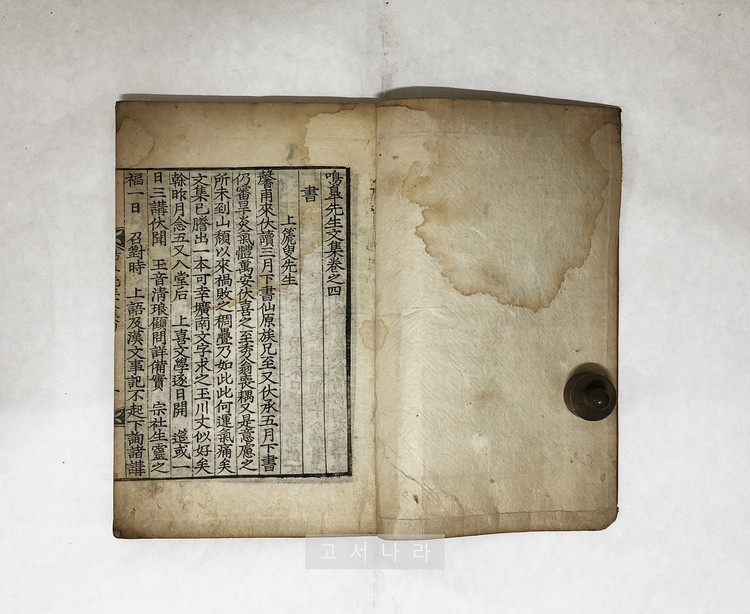 鳴臯先生文集卷之四
書
上篪叟先生
馨甫來伏讀三月下書仙原族兄至又伏承五月下書
仍審旱炎氣體萬安伏喜之至秀翁喪耦又是意慮之
所未到山頹以來禍敗之稠疊乃如此此何運氣痛矣
文集已謄出一本可幸壙南文字求之玉川文似好矣
幹昨月念五又入堂后 上喜文學逐日開 筵或一
日三講伏聞 玉音清琅顧問詳備實 宗社生靈之
福一日 召對時 上語及漢文事記不起下詢諸講
고서나라